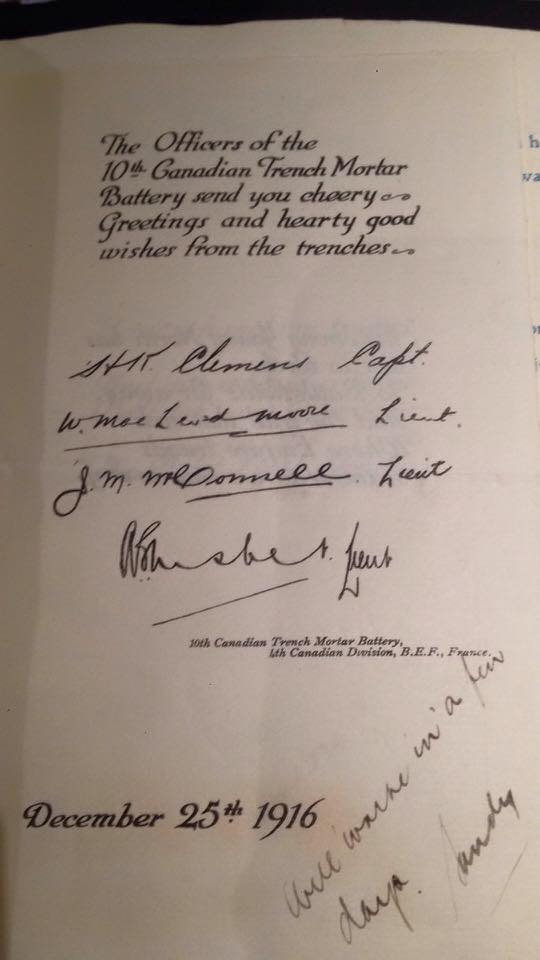 The Officers of the
10th Canadian Trench Mortar
Battery send you cheery
Greetings and hearty good
wishes from the trenches
Clemens Capt.
W. Mac Leod Moore Lieut.
J. M. McDonnell. Lieut
Lieut
10th Canadian Trench Mortar Battery,
4th Canadian Division, B.E.F., France.
December 25th 1916
Will write in a few
days. Sandy